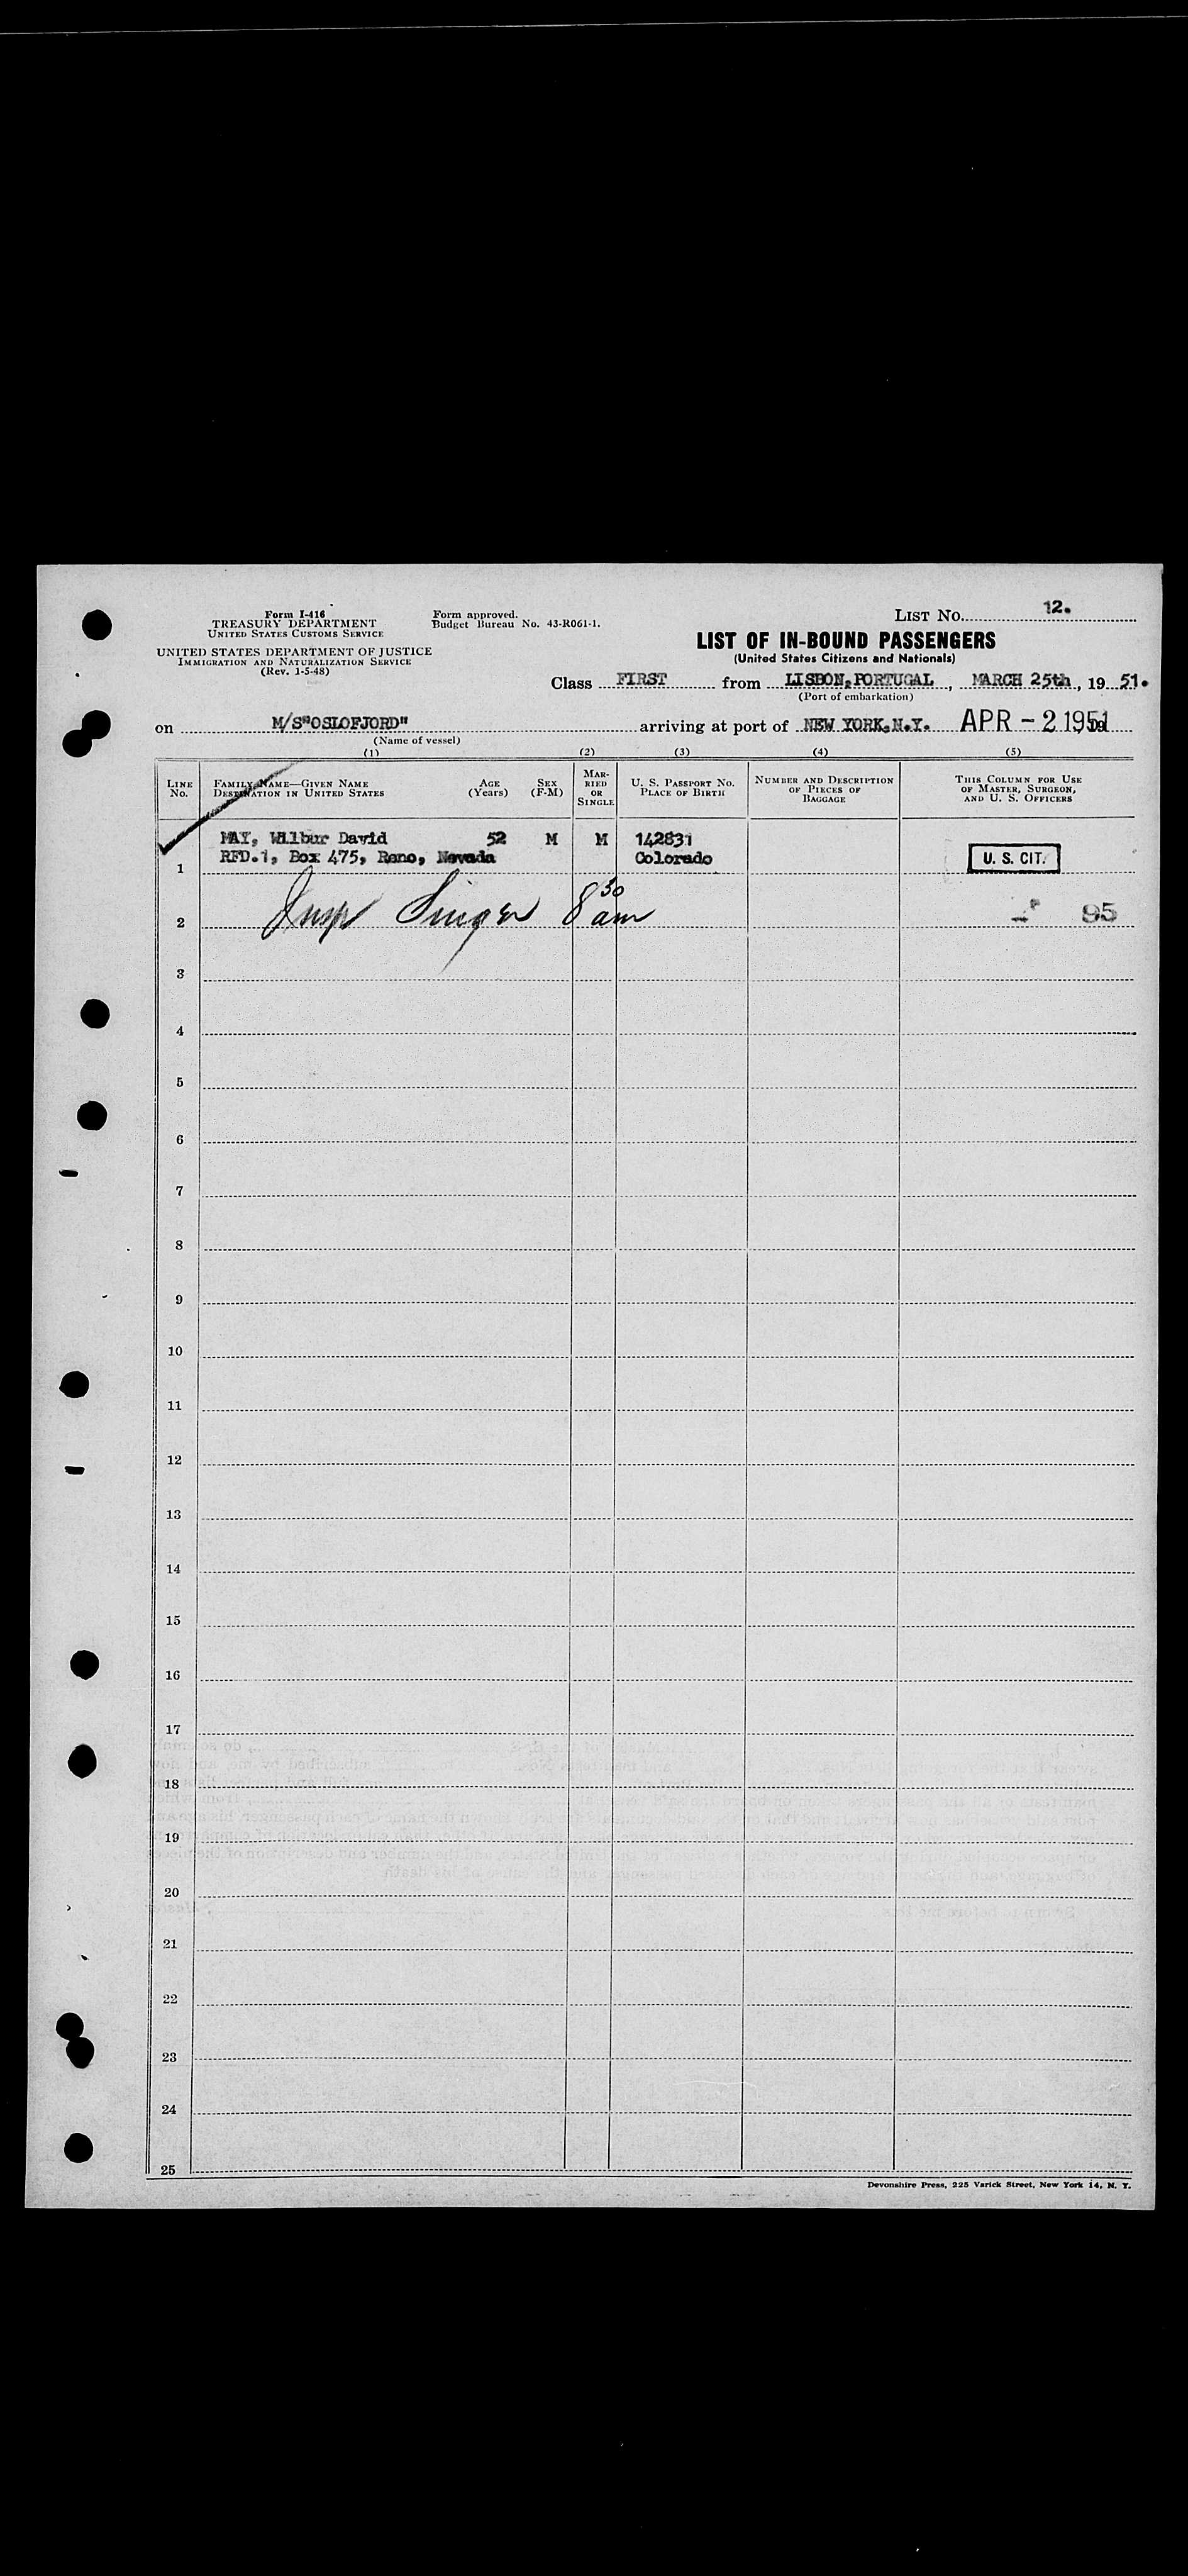 Form I-416
TREASURY DEPARTMENT
UNITED STATES CUSTOMS SERVICE
UNITED STATES DEPARTMENT OF JUSTICE
IMMIGRATION AND NATURALIZATION SERVICE
(Rev. 1-5-48)
Form approved.
Budget Bureau No. 43-R061-1.
LIST No. 12.
LIST OF IN-BOUND PASSENGERS
(United States Citizens and Nationals)
Class FIRST from LISBON, PORTUGAL, MARCH 25th, 19 51.
(Port of embarkation)
on M/S"OSLOFJORD" arriving at port of NEW YORK, N.Y. APR - 2 1951
(Name of vessel)
(1) (2) (3) (4) (5)
LINE No. FAMILY NAME—GIVEN NAME DESTINATION IN UNITED STATES AGE (Years) SEX (F-M) MARRIED OR SINGLE U. S. PASSPORT NO. PLACE OF BIRTH NUMBER AND DESCRIPTION OF PIECES OF BAGGAGE THIS COLUMN FOR USE OF MASTER, SURGEON, AND U. S. OFFICERS
MAY, Wilbur David 52 M M 142831
1 RFD.1, Box 475, Reno, Nevada Colorado U. S. CIT.
2 Insp Singer 8 30 am 95
3
4
5
6
7
8
9
10
11
12
13
14
15
16
17
18
19
20
21
22
23
24
25
Devonshire Press, 225 Varick Street, New York 14, N. Y.